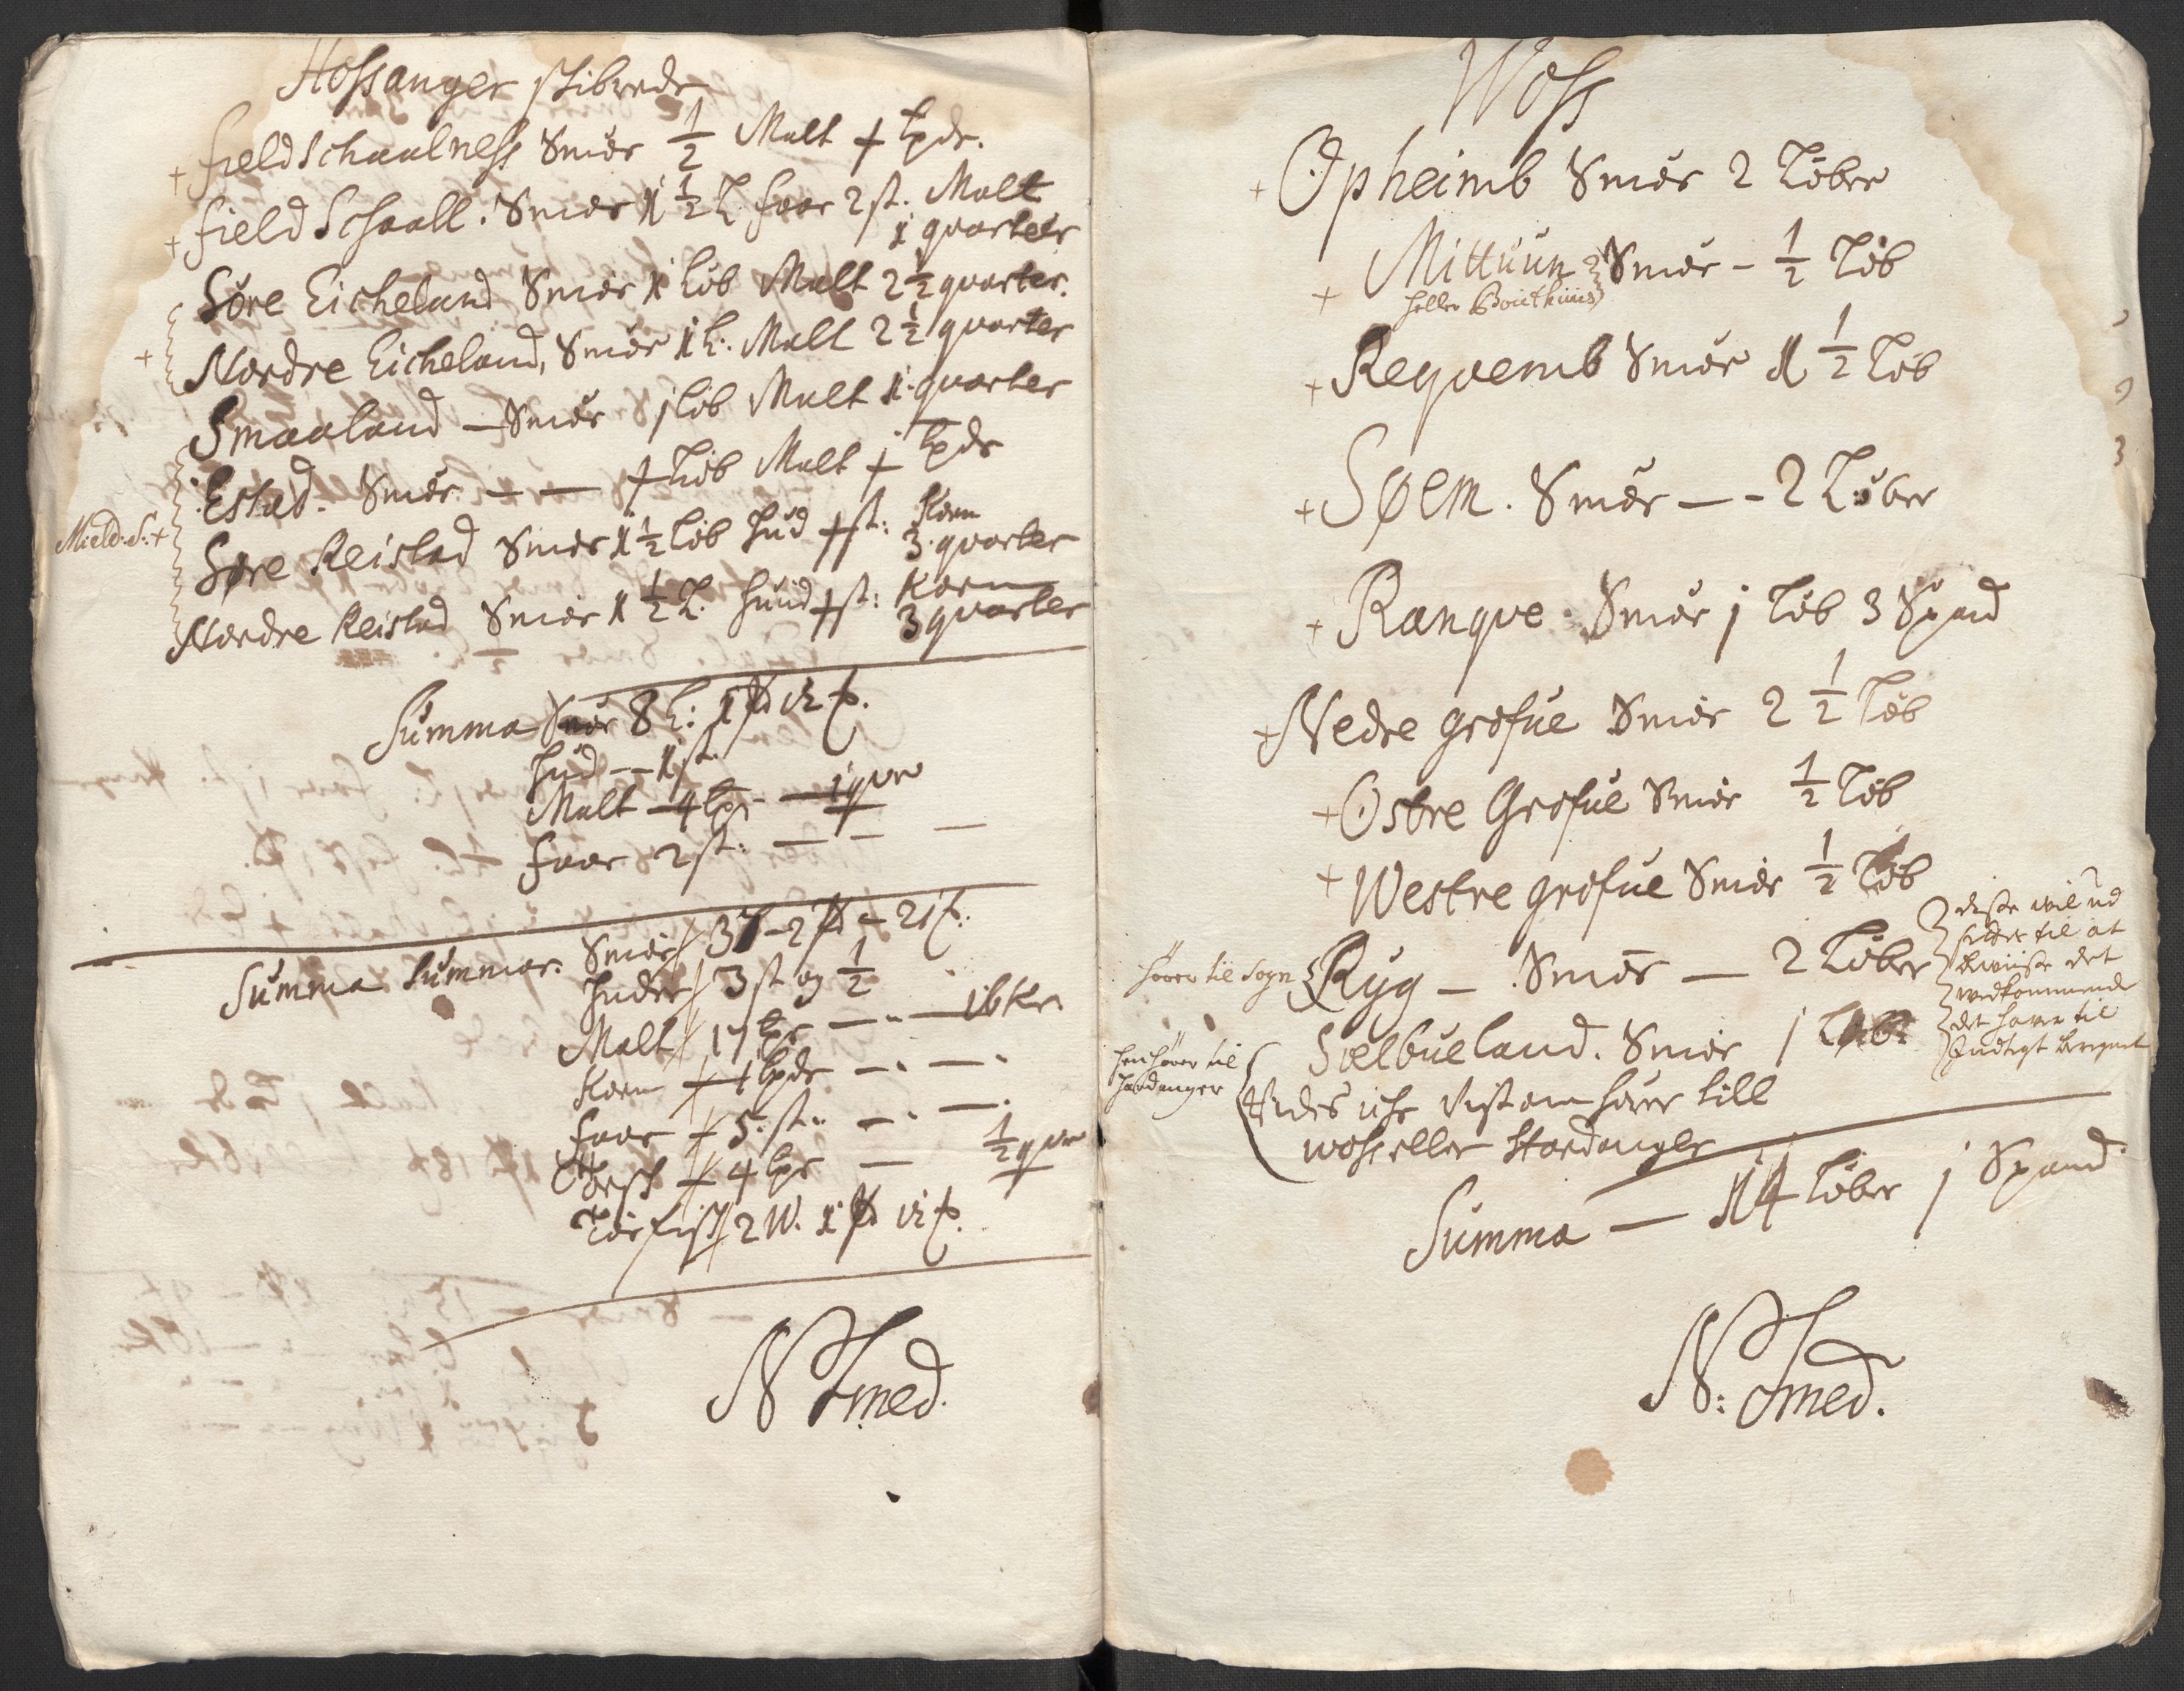 Hossanger skibrede
+ field Schaalness Smör 1/2 Malt + lpdr.
+ field Schaall. Smör 1 1/2 L. faar 2 st. Malt
1 quarteer
Söre Eicheland Smör 1 löb Malt 2 1/2 quarter.
+ Nordre Eicheland, Smör 1 L. Malt 2 1/2 quarter
Smaaland — Smör j löb Malt 1 quarter
Estad. Smör — — + löb Malt + lpdr
Mield. S. +
Søre Reistad Smör 1 1/2 löb hud + st: Korn
3. quarter
Nordre Reistad Smör 1 1/2 L. huud + st: Korn
3 quarter
Summa Smör 8 L: 1
hud — 1 st.
Malt — 4 lpr — 1 qvr
faar 2 st. — —
Summa Summar. Smör 37 - 2 - 21
huder 3 st og 1/2
Malt 17 lpr — 16 kr.
Korn — 1 lpdr — —
faar — 5. st. — —
Törsch — 4 lpr — 1/2 qvr
Tör fisk 2 W. 1
N Smed.
Woss
+ Opheimb Smör 2 Löber
+ Mittuun Smör - 1/2 Löb
heller Bouthuus
+ Reqvemb Smör 1 1/2 Löb
+ Søem. Smör — - 2 Löber
+ Ranque. Smör j Löb 3 Spand
+ Nedre grofue Smör 2 1/2 Löb
+ Ostre Grofue Smör 1/2 Löb
+ Westre grofue Smör 1/2 Löb
hörer til Sogn Ryg — Smör — 2 Löber
disse wil ud
til at
bewiise det
wedkommende
det hörer til
Sælbueland. Smör j Löb
henhörer til
Hardanger
Vides iche vist om hörer till
woss eller Hardanger
Summa — 14 Löber j Spand
N: Smed.